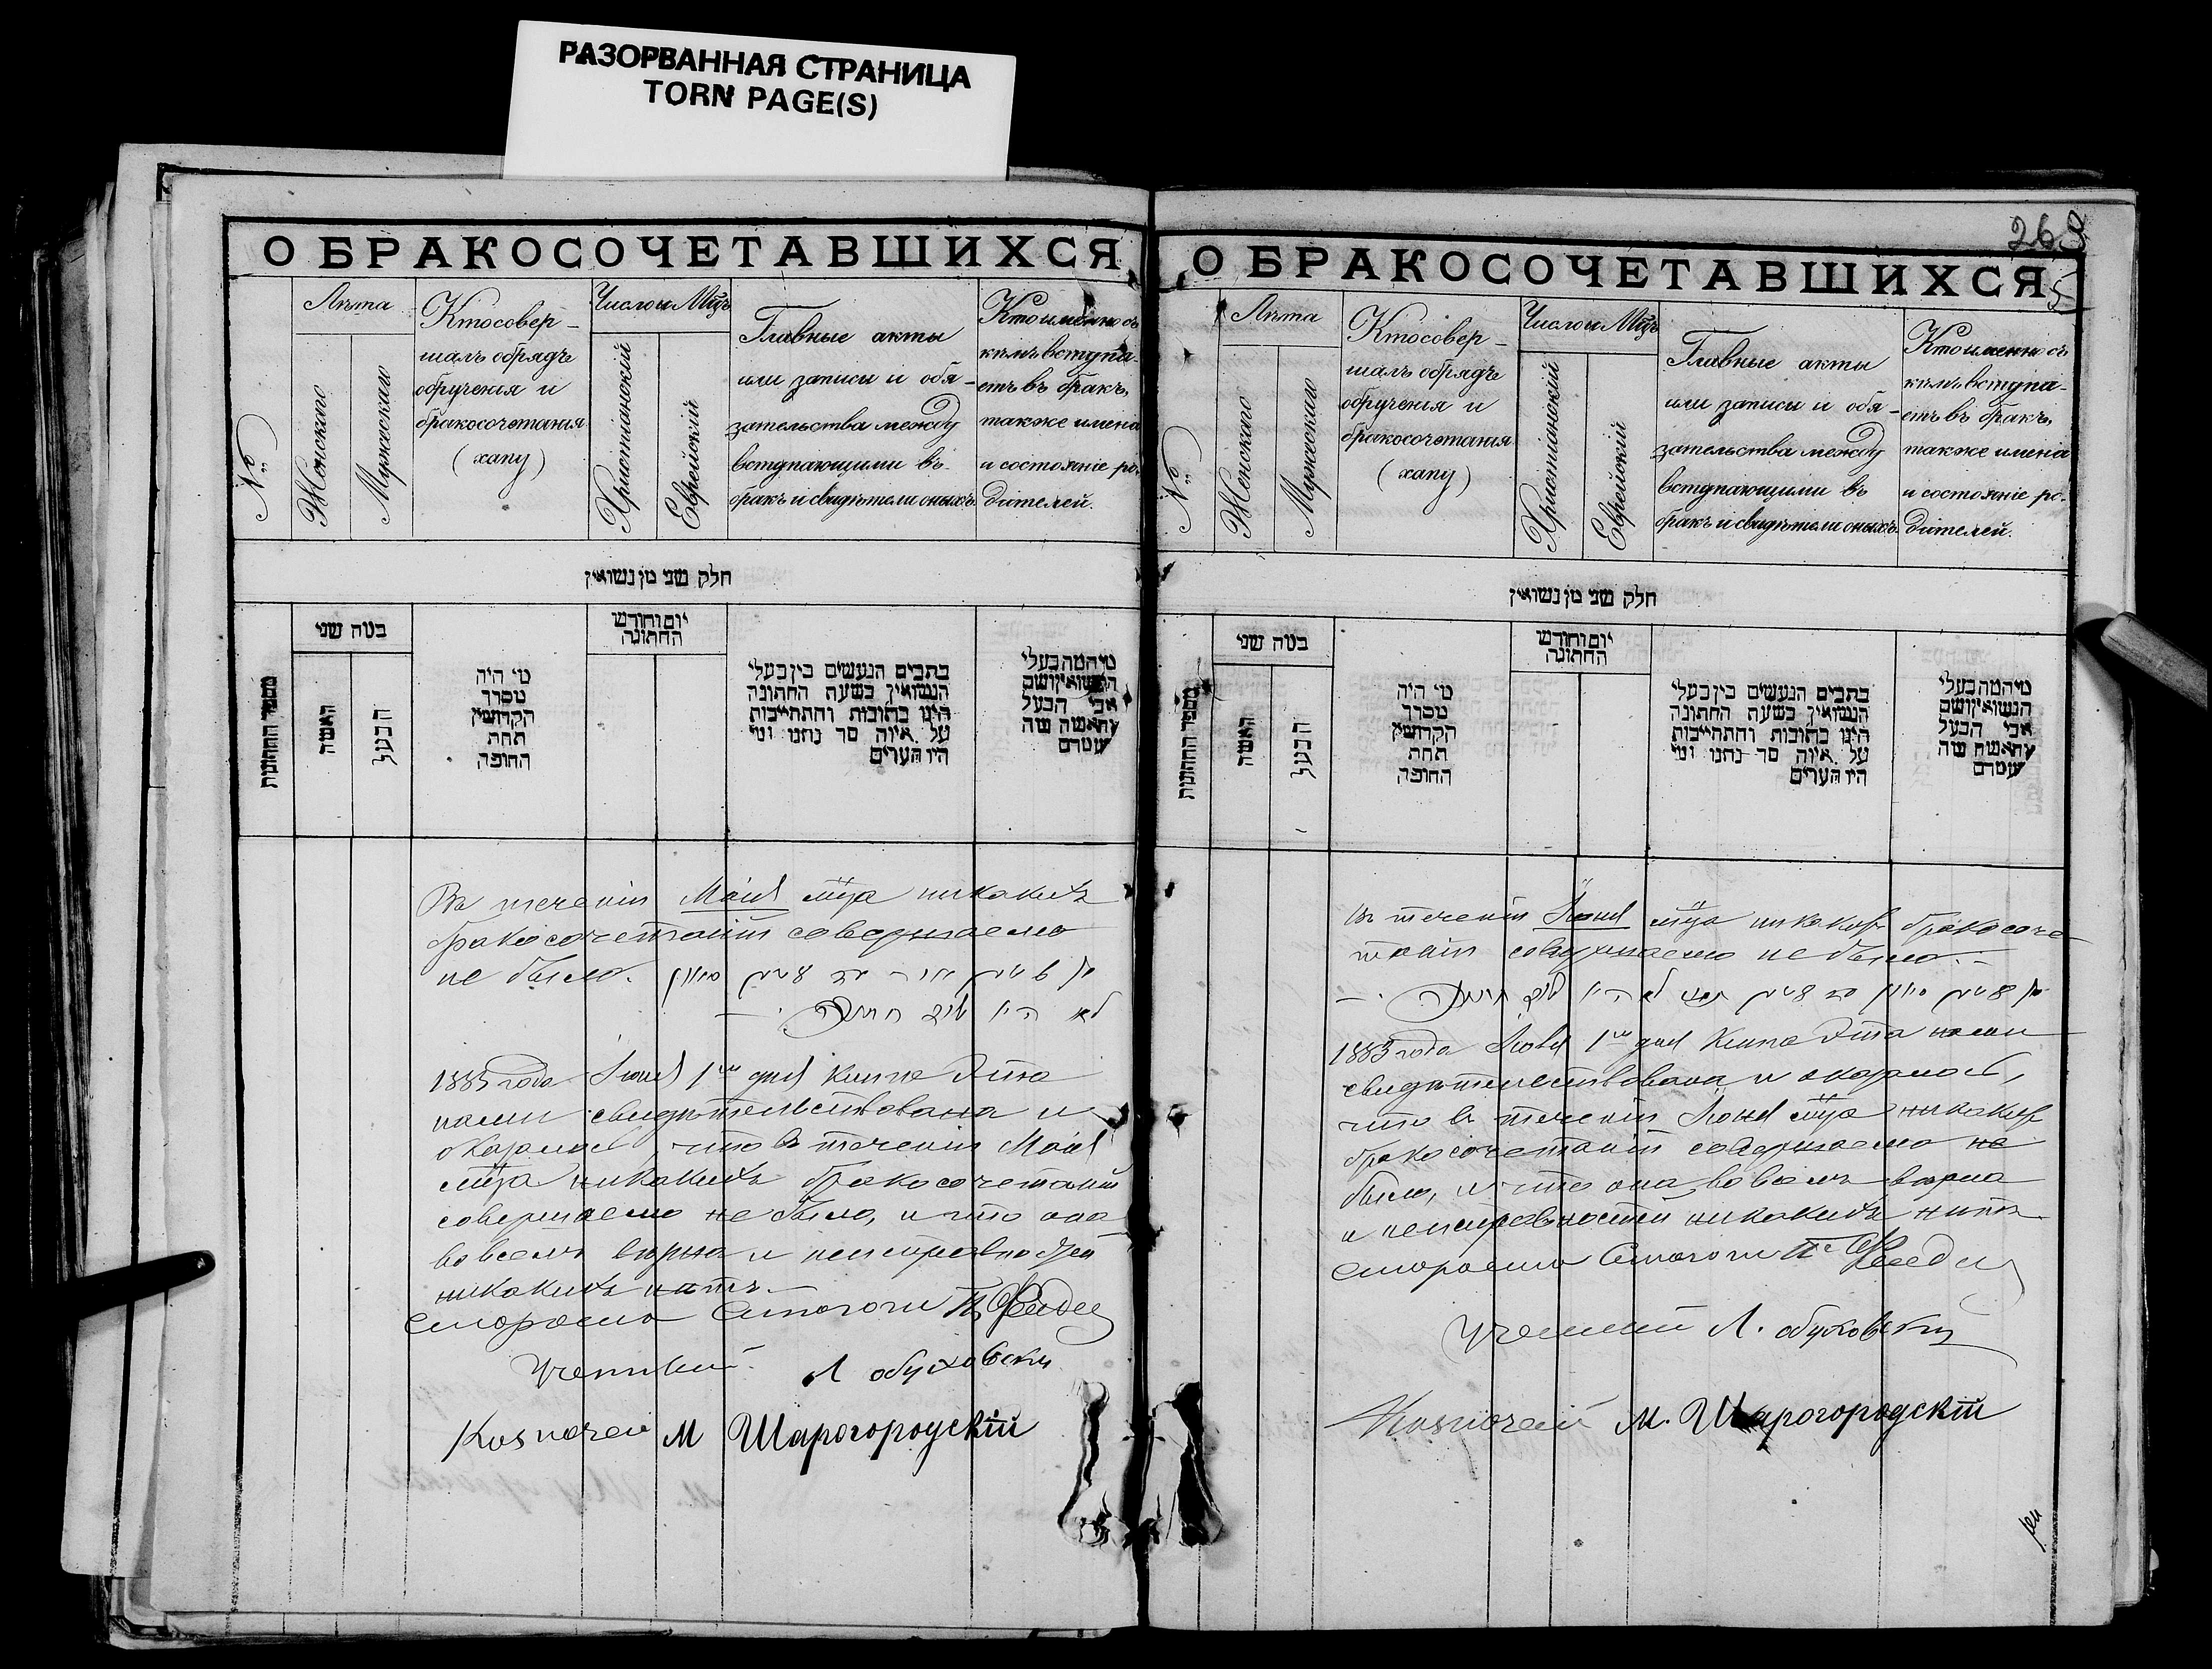 РАЗОРВАННАЯ СТРАНИЦА
TORN PAGE(S)
О БРАКОСОЧЕТАВШИХСЯ
№
Лѣта
Женскаго
Мужескаго
Кто совер-
шалъ обрядъ
обрученія и
бракосочетанія
(хапу)
Число и Мѣцъ
Христіанскій
Еврейскій
Главные акты
или записи и обя-
зательства между
вступающими въ
бракъ и свидѣтели оныхъ.
Кто именно съ
кѣмъ вступа-
етъ въ бракъ,
также имена
и состояніе ро-
дителей.
חלק שני מן נשואין
מספר החתונות
במה שני
האשה
הבעל
מי היה
מסדר
הקדושין
תחת
החופה
יום וחודש
החתונה
כתבים הנעשים בין בעלי
הנשואין בשעת החתונה
היינו כתובות והתחייבות
על איזה סך נתנו ומי
היו העדים
מי המה בעלי
הנשואין ושם
אבי הבעל
והאשה מה
עמדם
Въ теченіи Маія мѣца никакихъ
бракосочетаній совершаемо
не было.
לא היו שום חתונה
1883 года Іюня 1го дня Книга Эта
нами свидѣтельствована и
оказалось, что въ теченіи Маія
мѣца никакихъ бракосочетаній
совершаемо не было, и что она
во всемъ вѣрна и неисправностей
никакихъ нѣтъ.
Староста Синагоги
Ученый Л Обуховскій
Казначей М Шарогородскій
268
5
О БРАКОСОЧЕТАВШИХСЯ
№
Лѣта
Женскаго
Мужескаго
Кто совер-
шалъ обрядъ
обрученія и
бракосочетанія
(хапу)
Число и Мѣцъ
Христіанскій
Еврейскій
Главные акты
или записи и обя-
зательства между
вступающими въ
бракъ и свидѣтели оныхъ.
Кто именно съ
кѣмъ вступа-
етъ въ бракъ,
также имена
и состояніе ро-
дителей.
חלק שני מן נשואין
מספר החתונות
במה שני
האשה
הבעל
מי היה
מסדר
הקדושין
תחת
החופה
יום וחודש
החתונה
כתבים הנעשים בין בעלי
הנשואין בשעת החתונה
היינו כתובות והתחייבות
על איזה סך נתנו ומי
היו העדים
מי המה בעלי
הנשואין ושם
אבי הבעל
והאשה מה
עמדם
Въ теченіи Іюня мѣца никакихъ бракосоче-
таній совершаемо не было.
לא היו שום חתונה
1883 года 1го дня Книга Эта нами
свидѣтельствована и оказалось,
что въ теченіи Іюня мѣца никакихъ
бракосочетаній совершаемо не
было, и что она во всемъ вѣрна
и неисправностей никакихъ нѣтъ
Староста Синагоги
Ученый Л. Обуховскій
Казначей М. Шарогородскій